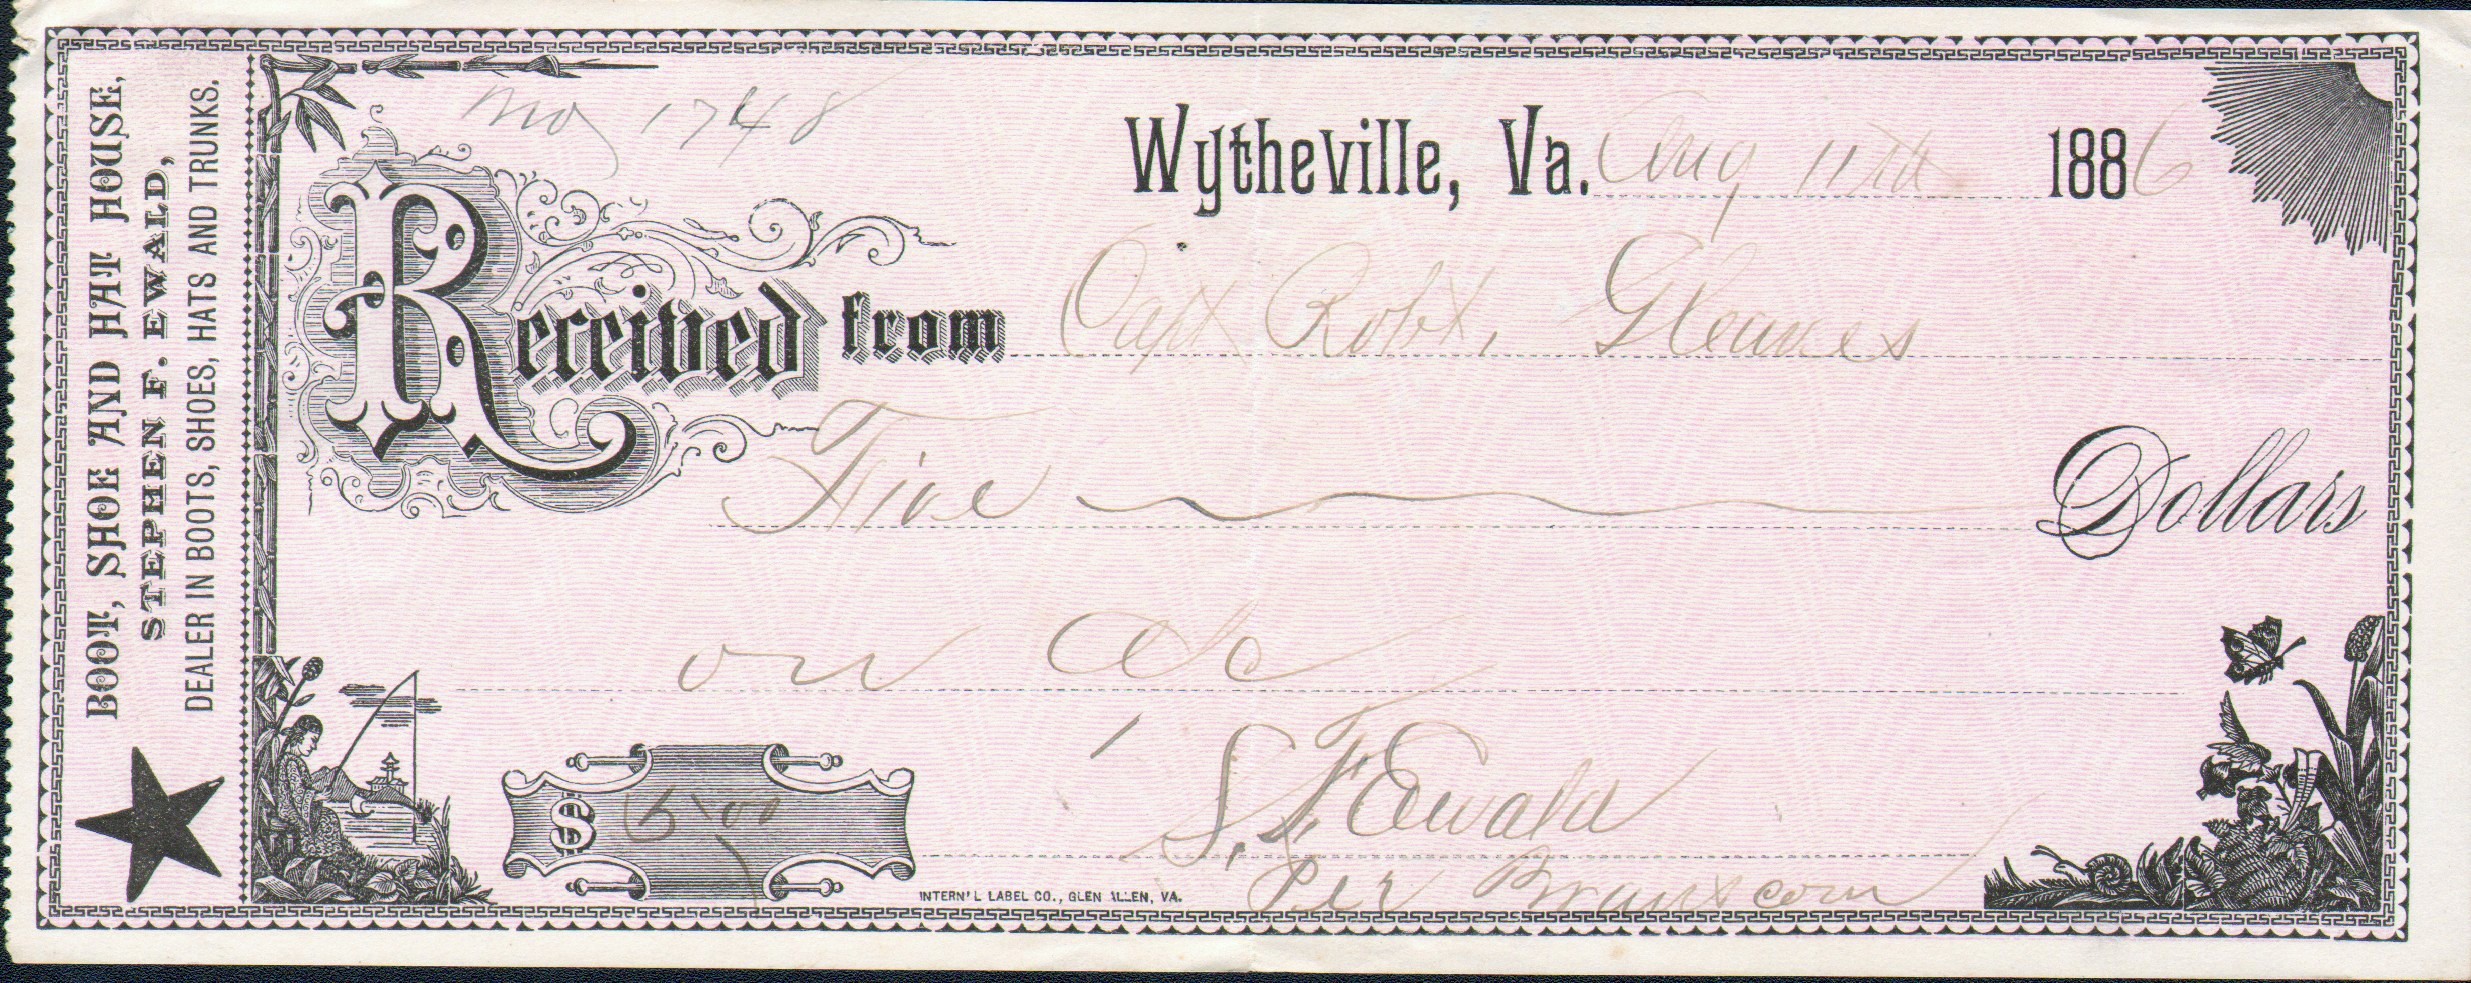 BOOT, SHOE AND HAT HOUSE,
STEPHEN F. EWALD,
DEALER IN BOOTS, SHOES, HATS AND TRUNKS.
1748
Wytheville, Va. Aug 11th 1886
Received from Capt Robt. Gleaves
Five Dollars
on a/c
$ 5.00
S. F. Ewald
Per Branscom
INTERN'L LABEL CO., GLEN ALLEN, VA.